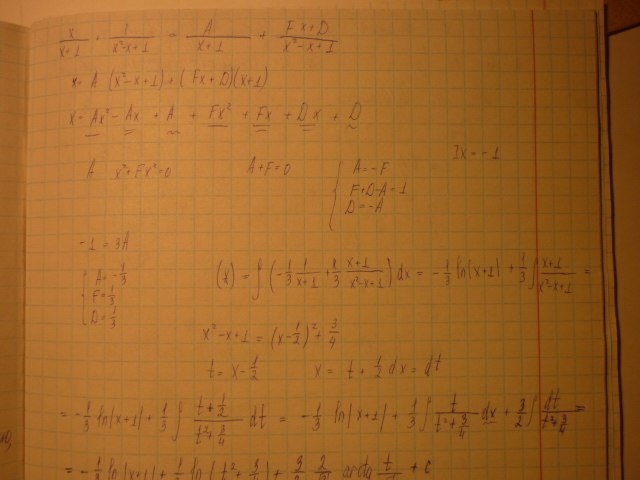 x/(x+1) · 1/(x²-x+1) = A/(x+1) + (Fx+D)/(x²-x+1)
x = A (x²-x+1) + (Fx+D)(x+1)
x = Ax² - Ax + A + Fx² + Fx + Dx + D
Ix = -1
A x² + Fx² = 0 A+F=0 { A = -F
F+D-A = 1
D = -A
-1 = 3A
{ A = -1/3
F = 1/3
D = 1/3
(*) = ∫ (-1/3 1/(x+1) + 1/3 (x+1)/(x²-x+1)) dx = -1/3 ln|x+1| + 1/3 ∫ (x+1)/(x²-x+1) =
x²-x+1 = (x-1/2)² + 3/4
t = x - 1/2 x = t + 1/2 dx = dt
= -1/3 ln|x+1| + 1/3 ∫ (t+1/2)/(t²+3/4) dt = -1/3 ln|x+1| + 1/3 ∫ t/(t²+3/4) dx + 3/2 ∫ dt/(t²+3/4) =
= -1/3 ln|x+1| + 1/3 ln(t²+3/4) + + c